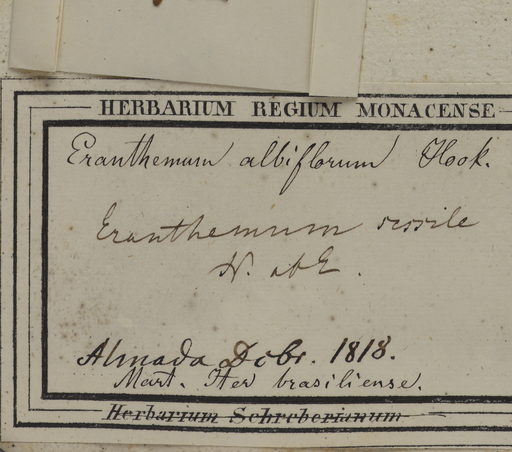 HERBARIUM REGIUM MONACENSE
Eranthemum albiflorum Hook.
Eranthemum sessile
N. ab E.
Almada Dcbr. 1818.
Mart. Iter brasiliense.
Herbarium Schreberianum